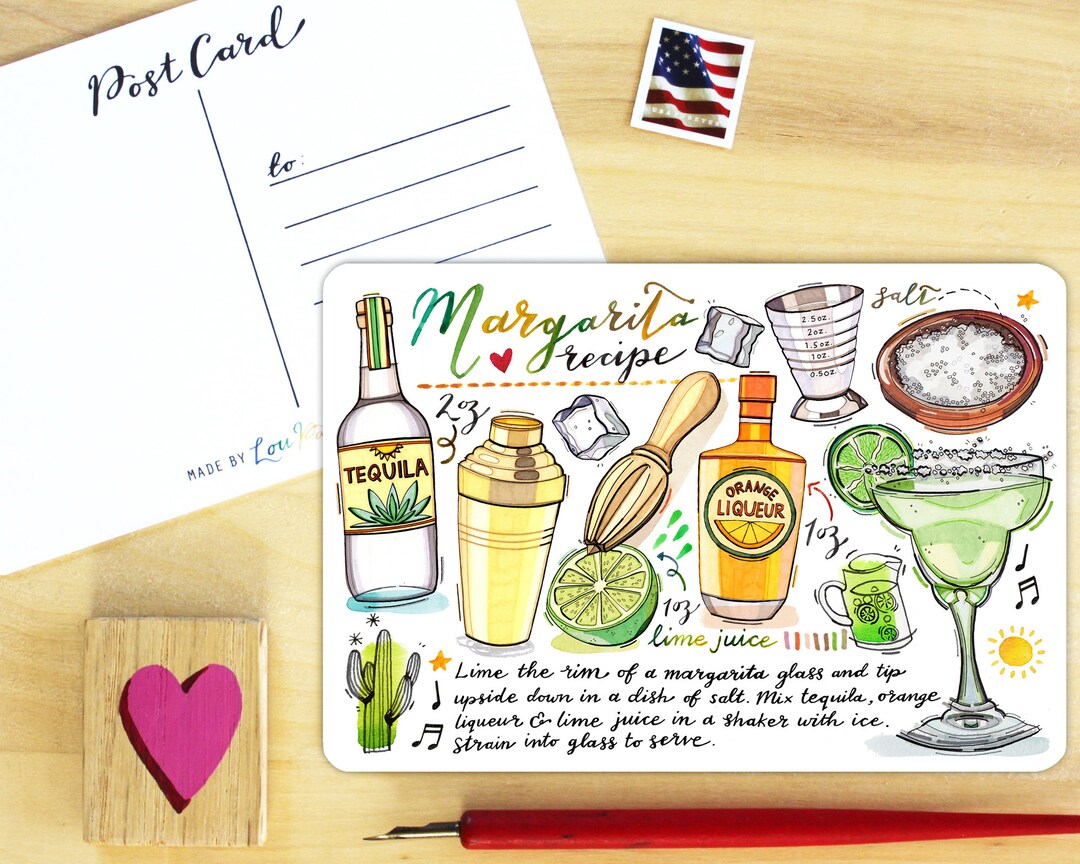 Post Card
to:
MADE BY Lou
Margarita
recipe
salt
2.5oz.
2oz.
1.5oz.
1oz.
0.5oz.
2oz
TEQUILA
ORANGE
LIQUEUR
1oz
1oz
lime juice
Lime the rim of a margarita glass and tip
upside down in a dish of salt. Mix tequila, orange
liqueur & lime juice in a shaker with ice.
Strain into glass to serve.